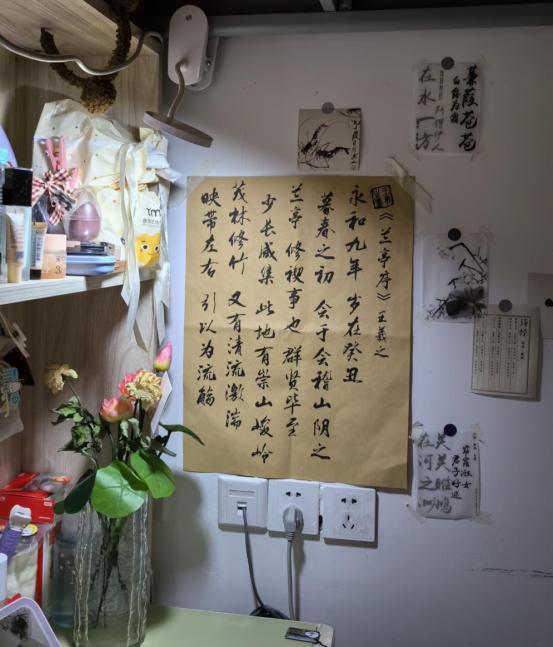 《兰亭序》王羲之
永和九年 岁在癸丑
暮春之初 会于会稽山阴之
兰亭 修禊事也 群贤毕至
少长咸集 此地有崇山峻岭
茂林修竹 又有清流激湍
映带左右 引以为流觞
蒹葭苍苍
白露为霜
所谓伊人
在水一方
关关雎鸠
在河之洲
窈窕淑女
君子好逑